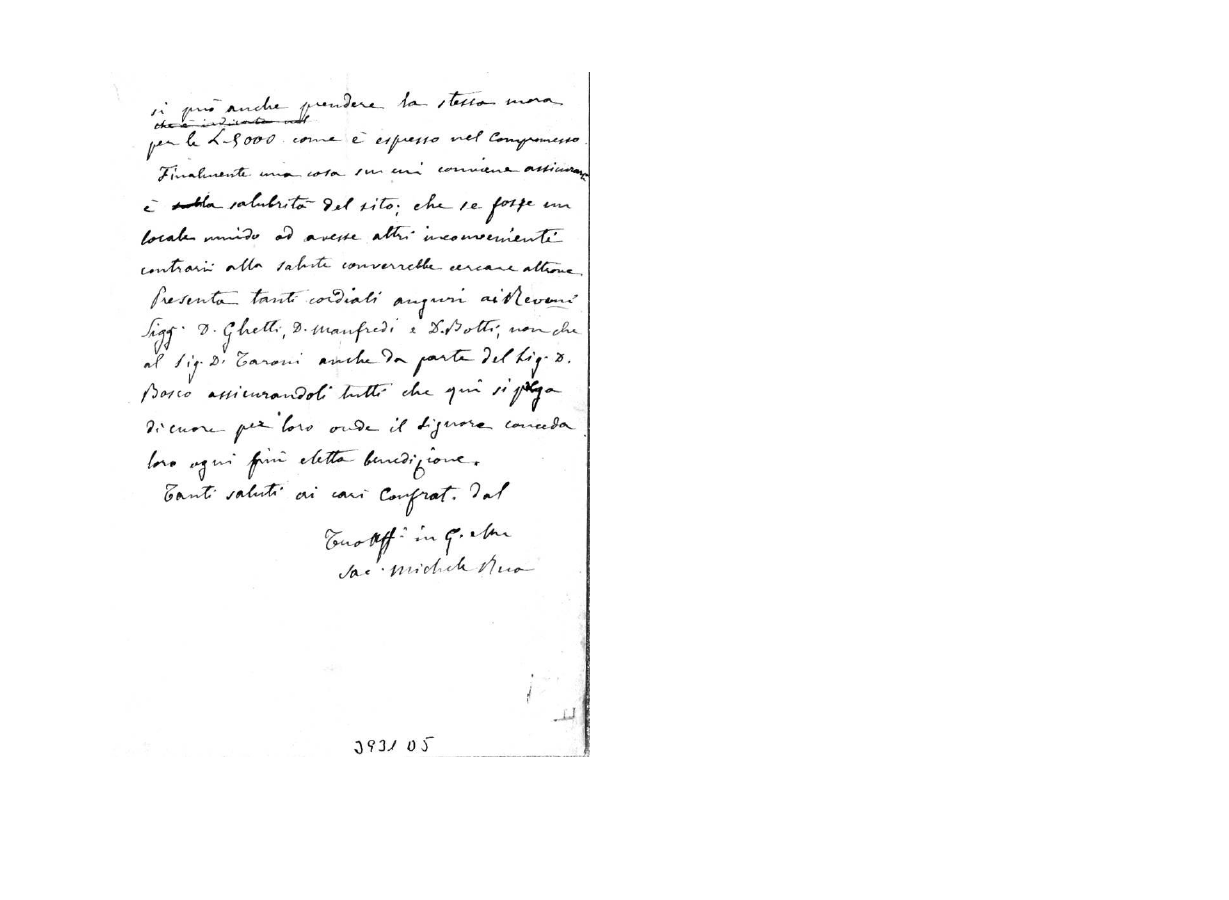 si può anche prendere la stessa mora
che è indicata nel
per le L. 5000 come è espresso nel Compromesso.
Finalmente una cosa su cui conviene assicurarsi
è sulla salubrità del sito; che se fosse un
locale umido od avesse altri inconvenienti
contrarii alla salute converrebbe cercare altrove.
Presenta tanti cordiali auguri ai Revdmi
Sigg. D. Ghetti, D. Manfredi e D. Botti, non che
al Sig. D. Taroni anche da parte del Sig. D.
Bosco assicurandoli tutti che qui si prega
di cuore per loro onde il Signore conceda
loro ogni più eletta benedizione.
Tanti saluti ai cari Confrat. dal
Tuo Aff. in G. e M.
Sac. Michele Rua
3931 D5